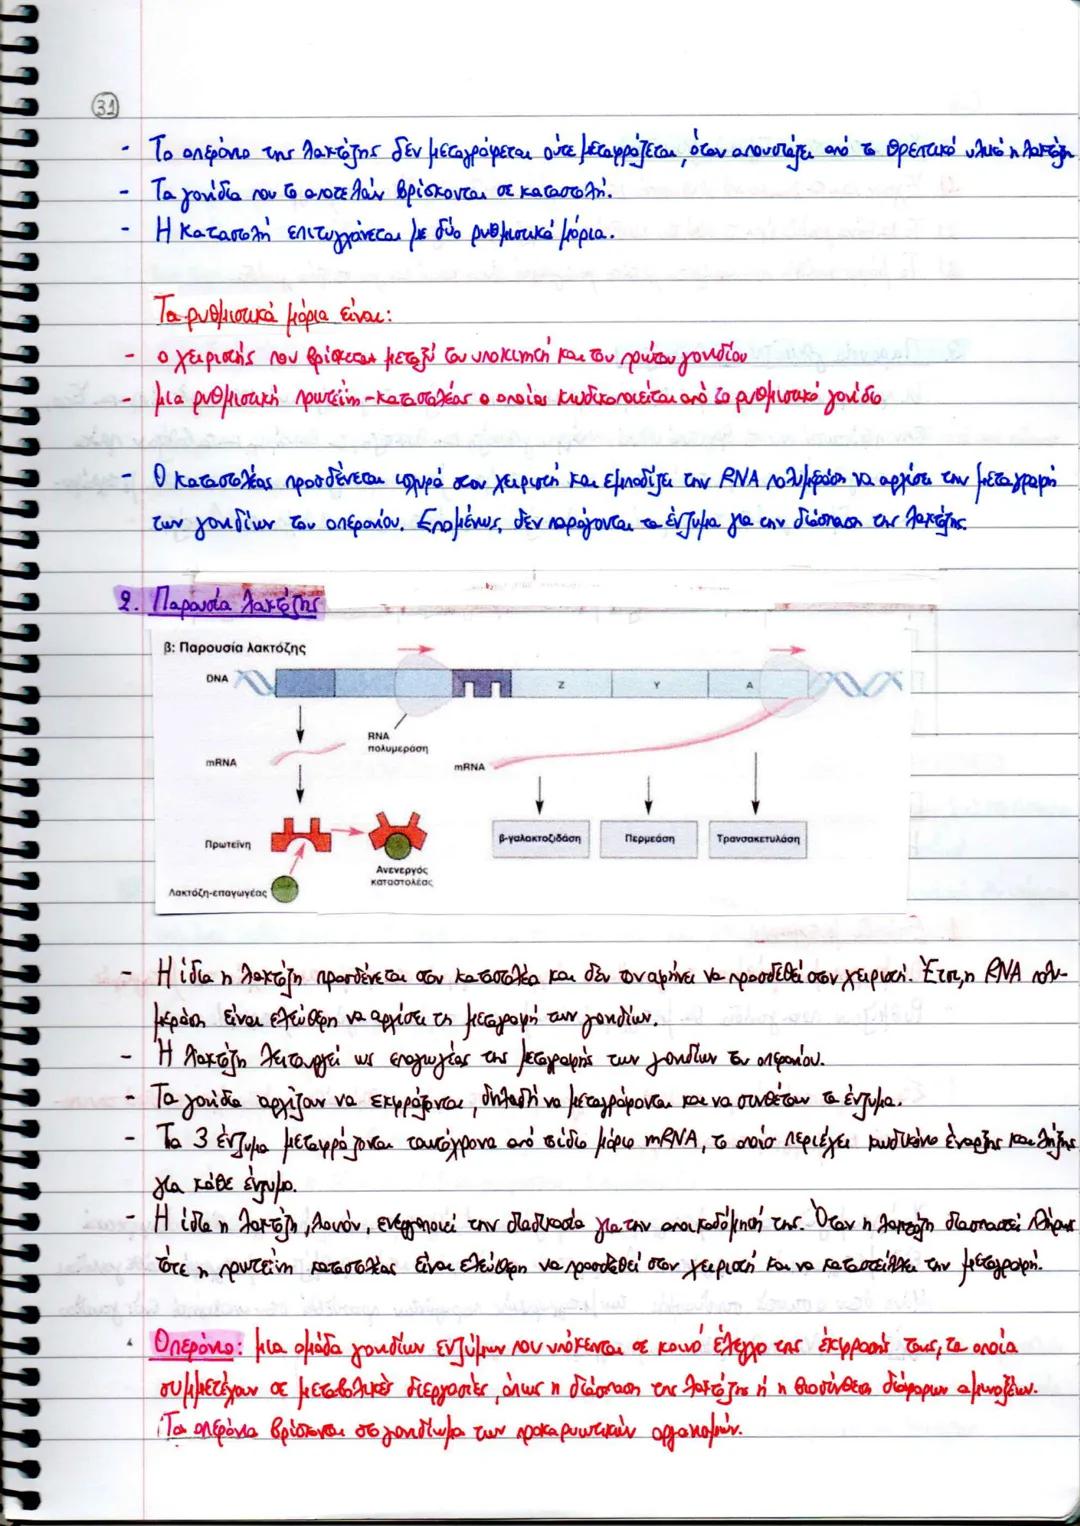 31
- Το οπερόνιο της λακτόζης δεν μεταγράφεται ούτε μεταφράζεται, όταν απουσιάζει από το θρεπτικό υλικό η λακτόζη
- Τα γονίδια που το αποτελούν βρίσκονται σε καταστολή.
- Η καταστολή επιτυγχάνεται με δύο ρυθμιστικά μόρια.
Τα ρυθμιστικά μόρια είναι:
- ο χειριστής που βρίσκεται μεταξύ του υποκινητή και του πρώτου γονιδίου
- μια ρυθμιστική πρωτεΐνη-καταστολέας ο οποίος κωδικοποιείται από το ρυθμιστικό γονίδιο
- Ο καταστολέας προσδένεται ισχυρά στον χειριστή και εμποδίζει την RNA πολυμεράση να αρχίσει την μεταγραφή
των γονιδίων του οπερονίου. Επομένως, δεν παράγονται τα ένζυμα για την διάσπαση της λακτόζης.
2. Παρουσία λακτόζης
β: Παρουσία λακτόζης
DNA
Z Y A
RNA
πολυμεράση
mRNA
mRNA
Πρωτεΐνη
β-γαλακτοζιδάση Περμεάση Τρανσακετυλάση
Ανενεργός
καταστολέας
Λακτόζη-επαγωγέας
- Η ίδια η λακτόζη προσδένεται στον καταστολέα και δεν τον αφήνει να προσδεθεί στον χειριστή. Έτσι, η RNA πολυ-
μεράση είναι ελεύθερη να αρχίσει τη μεταγραφή των γονιδίων.
- Η λακτόζη λειτουργεί ως επαγωγέας της μεταγραφής των γονιδίων του οπερονίου.
- Τα γονίδια αρχίζουν να εκφράζονται, δηλαδή να μεταγράφονται και να συνθέτουν τα ένζυμα.
- Τα 3 ένζυμα μεταφράζονται ταυτόχρονα από το ίδιο μόριο mRNA, το οποίο περιέχει κωδικόνιο έναρξης και λήξης
για κάθε ένζυμο.
- Η ίδια η λακτόζη, λοιπόν, ενεργοποιεί την διαδικασία για την αποικοδόμησή της. Όταν η λακτόζη διασπαστεί πλήρως
τότε η πρωτεΐνη καταστολέας είναι ελεύθερη να προσδεθεί στον χειριστή και να καταστείλλει την μεταγραφή.
Οπερόνιο: μια ομάδα γονιδίων ενζύμων που υπόκεινται σε κοινό έλεγχο της έκφρασής τους, τα οποία
συμμετέχουν σε μεταβολικές διεργασίες, όπως η διάσπαση της λακτόζης ή η βιοσύνθεση διάφορων αμινοξέων.
Τα οπερόνια βρίσκονται στο γονιδίωμα των προκαρυωτικών οργανισμών.